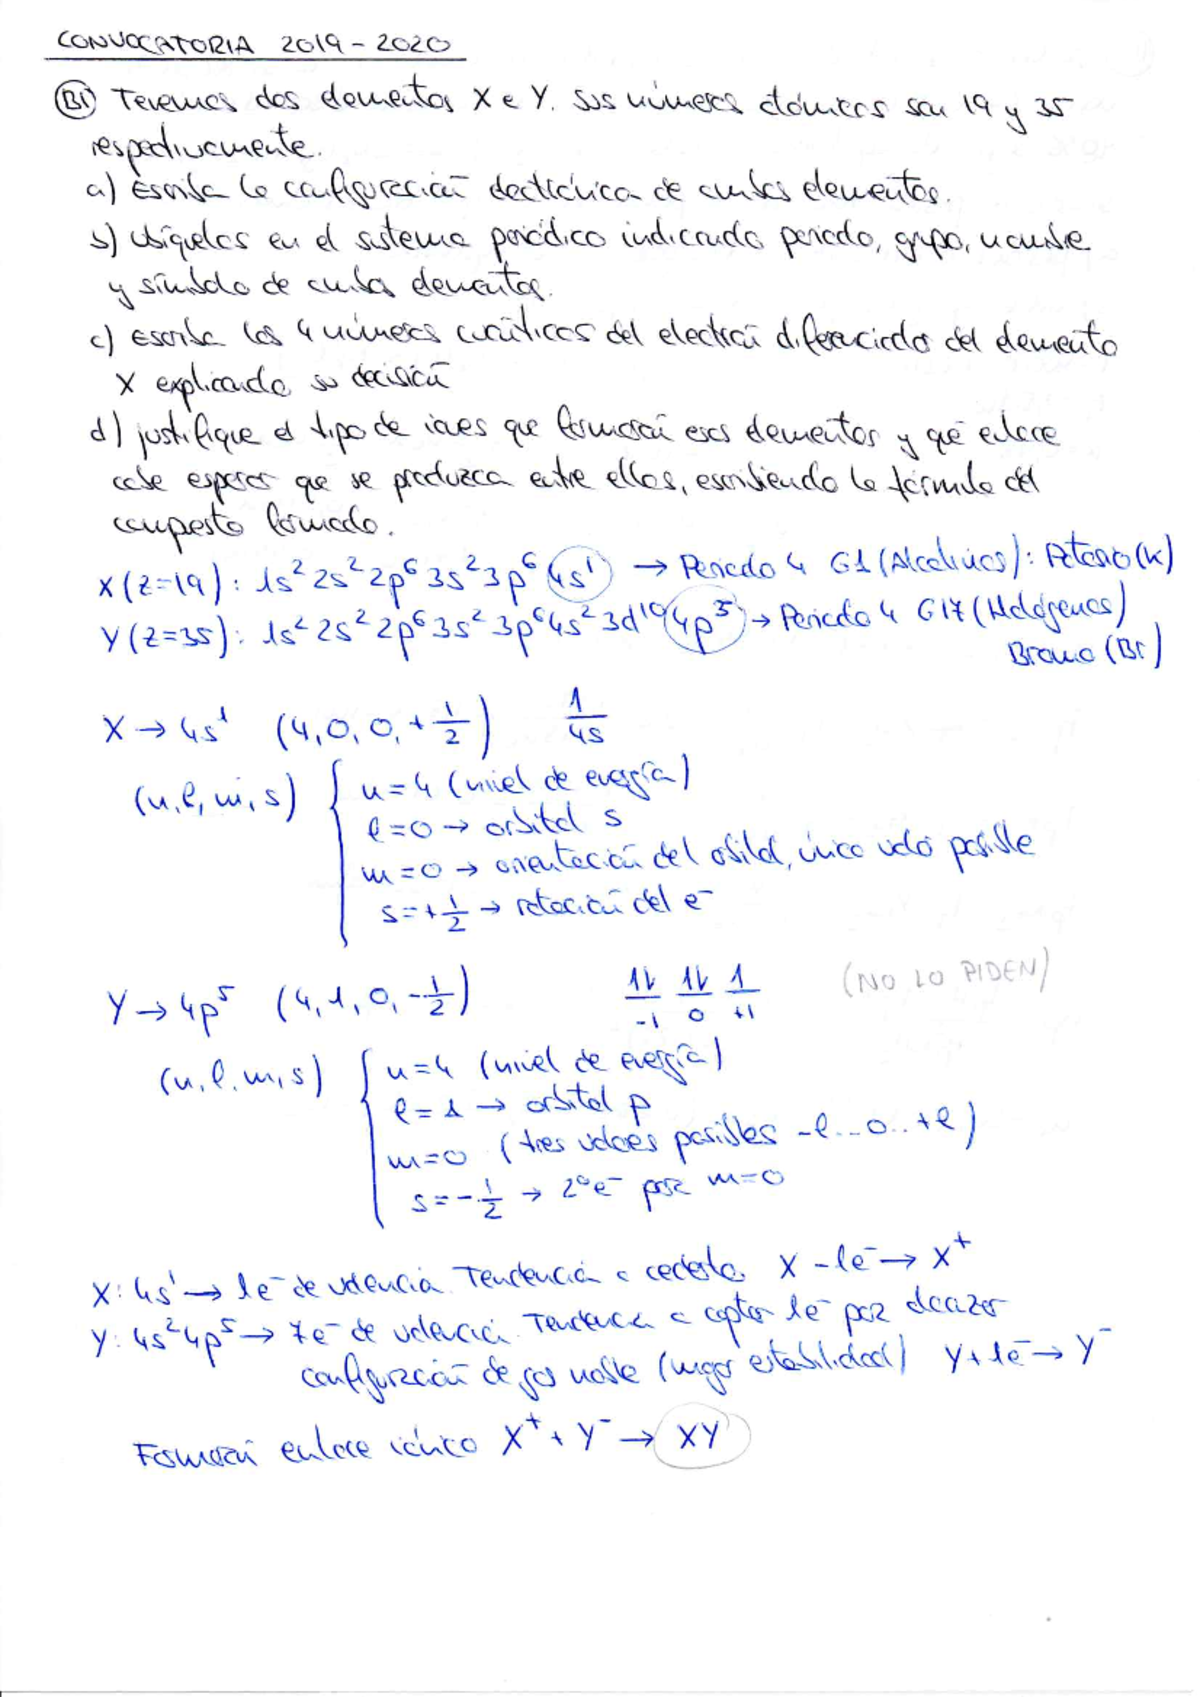 CONVOCATORIA 2019-2020
B1 Tenemos dos elementos X e Y. Sus números atómicos son 19 y 35
respectivamente.
a) Escriba la configuración electrónica de ambos elementos.
b) Ubíquelos en el sistema periódico indicando periodo, grupo, nombre
y símbolo de ambos elementos.
c) Escriba los 4 números cuánticos del electrón diferenciador del elemento
X explicando su decisión
d) justifique el tipo de iones que formarán esos elementos y qué enlace
cabe esperar que se produzca entre ellos, escribiendo la fórmula del
compuesto formado.
X (Z=19): 1s² 2s² 2p⁶ 3s² 3p⁶ 4s¹ → Periodo 4 G1 (Alcalinos): Potasio (K)
Y (Z=35): 1s² 2s² 2p⁶ 3s² 3p⁶ 4s² 3d¹⁰ 4p⁵ → Periodo 4 G17 (Halógenos)
Bromo (Br)
X → 4s¹ (4, 0, 0, +1/2) 1 4s
(n, l, m, s) { n=4 (nivel de energía)
l=0 → orbital s
m=0 → orientación del orbital, único valor posible
s=+1/2 → rotación del e⁻
Y → 4p⁵ (4, 1, 0, -1/2) 1↓ 1↓ 1 -1 0 +1 (NO LO PIDEN)
(n, l, m, s) { n=4 (nivel de energía)
l=1 → orbital p
m=0 (tres valores posibles -l...0..+l)
s=-1/2 → 2º e⁻ por m=0
X: 4s¹ → 1e⁻ de valencia. Tendencia a cederlo X - 1e⁻ → X⁺
Y: 4s² 4p⁵ → 7e⁻ de valencia. Tendencia a captar 1e⁻ por alcanzar
configuración de gas noble (mayor estabilidad) Y + 1e⁻ → Y⁻
Formarán enlace iónico X⁺ + Y⁻ → XY